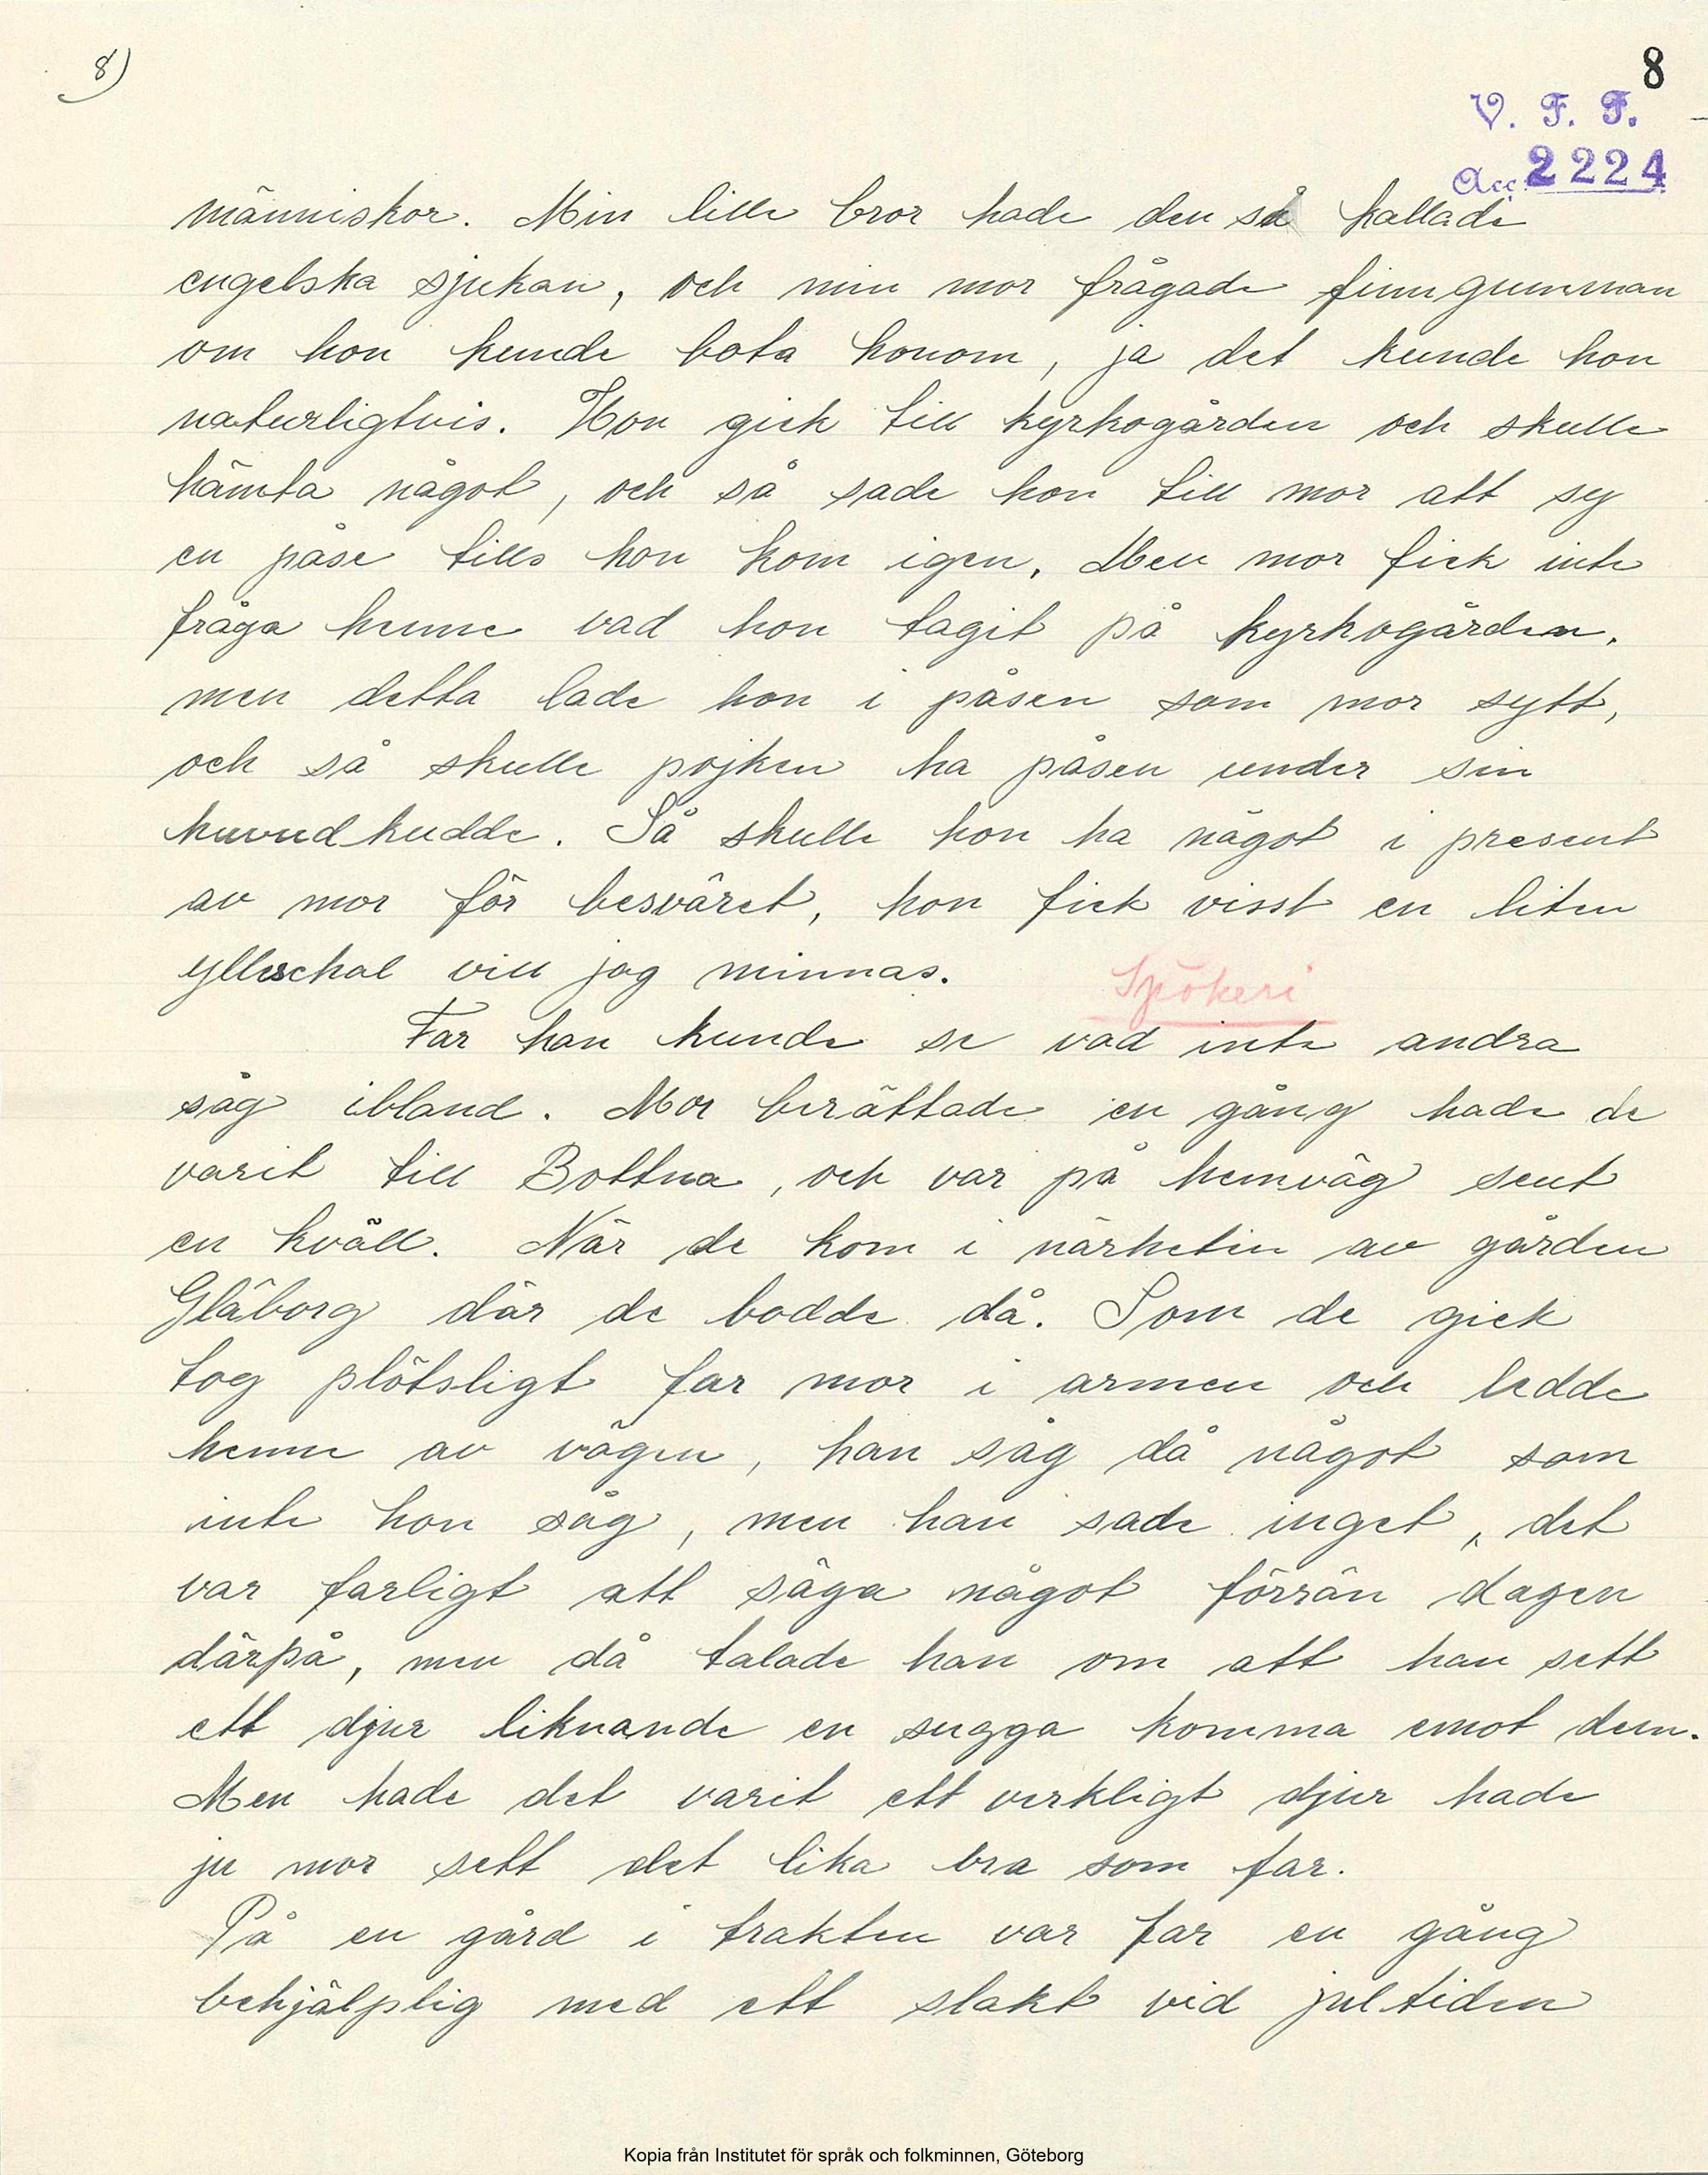 8)
8
V. F. F.
Acc. 2224
människor. Min lille bror hade den så kallade
engelska sjukan, och min mor frågade finngumman
om hon kunde bota honom, ja det kunde hon
naturligtvis. Hon gick till kyrkogården och skulle
hämta något, och så sade hon till mor att sy
en påse tills hon kom igen. Men mor fick inte
fråga henne vad hon tagit på kyrkogården,
men detta lade hon i påsen som mor sytt,
och så skulle pojken ha påsen under sin
huvudkudde. Så skulle hon ha något i present
av mor för besväret, hon fick visst en liten
ylleschal vill jag minnas.
Spökeri
Far han kunde se vad inte andra
såg ibland. Mor berättade en gång hade de
varit till Bottna, och var på hemväg sent
en kväll. När de kom i närheten av gården
Gläborg där de bodde då. Som de gick
tog plötsligt far mor i armen och ledde
henne av vägen, han såg då något som
inte hon såg, men han sade inget, det
var farligt att säga något förrän dagen
därpå, men då talade han om att han sett
ett djur liknande en sugga komma emot dem.
Men hade det varit ett verkligt djur hade
ju mor sett det lika bra som far.
På en gård i trakten var far en gång
behjälplig med ett slakt vid jultiden
Kopia från Institutet för språk och folkminnen, Göteborg